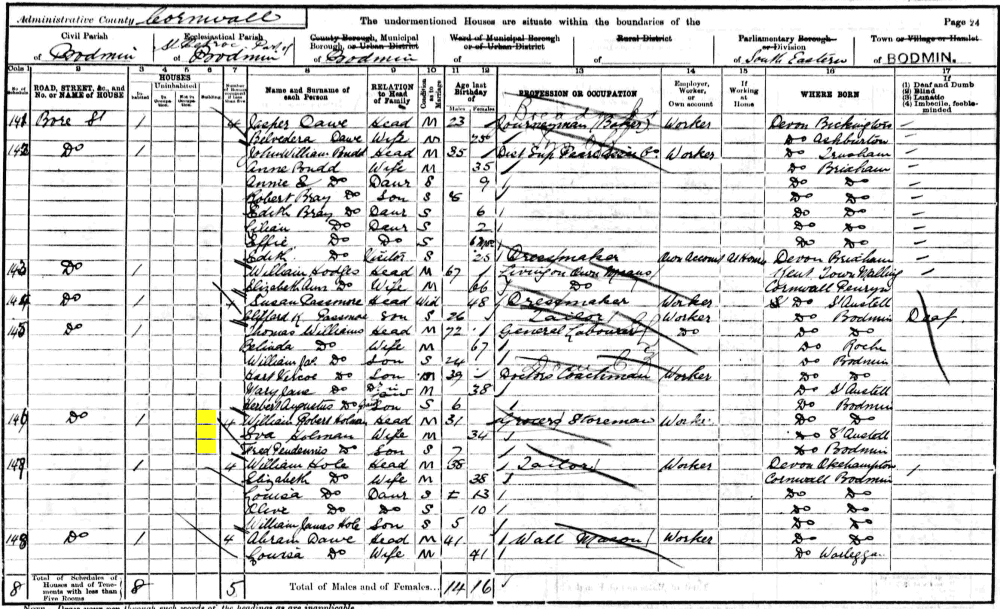 Administrative County Cornwall
The undermentioned Houses are situate within the boundaries of the
Page 24
Civil Parish
of Bodmin
Ecclesiastical Parish
of Bodmin
County Borough, Municipal
Borough, or Urban District
of Bodmin
Ward of Municipal Borough
or of Urban District
of
Rural District
of
Parliamentary Borough
or Division
of South Eastern
Town or Village or Hamlet
of BODMIN.
Cols 1 2 3 4 5 6 7 8 9 10 11 12 13 14 15 16 17
No. of Schedule
ROAD, STREET, &c., and No. or NAME of HOUSE
HOUSES
Inhabited
Uninhabited
In Occupation
Not in Occupation
Building
Name and Surname of each Person
RELATION to Head of Family
Condition as to Marriage
Age last Birthday of
Males
Females
PROFESSION OR OCCUPATION
Employer, Worker, or Own account
If Working at Home
WHERE BORN
If
(1) Deaf and Dumb
(2) Blind
(3) Lunatic
(4) Imbecile, feeble-minded
141 Bore St 1 4 Jasper Dawe Head M 23 Journeyman (Baker) Worker Devon Bickington
Belvedera Dawe Wife M 25 Do Ashburton
142 Do 1 John William Budd Head M 35 Worker Do Trusham
Anne Budd Wife M 35 Do Brixham
Annie E Do Daur S 9 Do Do
Robert Bray Do Son S 8 Do Do
Edith Bray Do Daur S 6 Do Do
Lilian Do Daur S 2 Do Do
Effie Do Do S Do Do
Edith Do Visitor S 25 Dressmaker Own Account At Home Devon Brixham
143 Do 1 William Hodges Head M 67 Living on Own Means Kent Town Malling
Elizabeth Ann Do Wife M 66 Do Cornwall Penryn
144 Do 1 Susan Passmore Head Wid 48 Dressmaker Worker Do St Austell
Clifford H Passmore Son S 26 Tailor Worker Do Bodmin Deaf
145 Do 1 Thomas Williams Head M 72 General Labourer Do Do Do
Belinda Do Wife M 67 Do Roche
William Jo. Do Son S 24 Do Bodmin
Vercoe Do Son M 39 Doctors Coachman Worker Do Do
Mary Jane Do M 38 Do St Austell
Herbert Augustus Do Son S 6 Do Bodmin
146 Do 1 4 William Robert Holman Head M 31 Grocers Storeman Worker Do Do
Eva Holman Wife M 34 Do St Austell
Fred Pendennis Do Son S 7 Do Bodmin
147 Do 1 4 William Hole Head M 38 Tailor Worker Devon Okehampton
Elizabeth Do Wife M 38 Cornwall Bodmin
Louisa Do Daur S 13 Do Do
Olive Do Do S 10 Do Do
William James Hole Son S 5 Do Do
148 Do 1 4 Abram Dawe Head M 41 Wall Mason Worker Do Do
Louisa Do Wife M 41 Do Warleggan
8 Total of Schedules of Houses and of Tenements with less than Five Rooms 8 5 Total of Males and of Females... 14 16